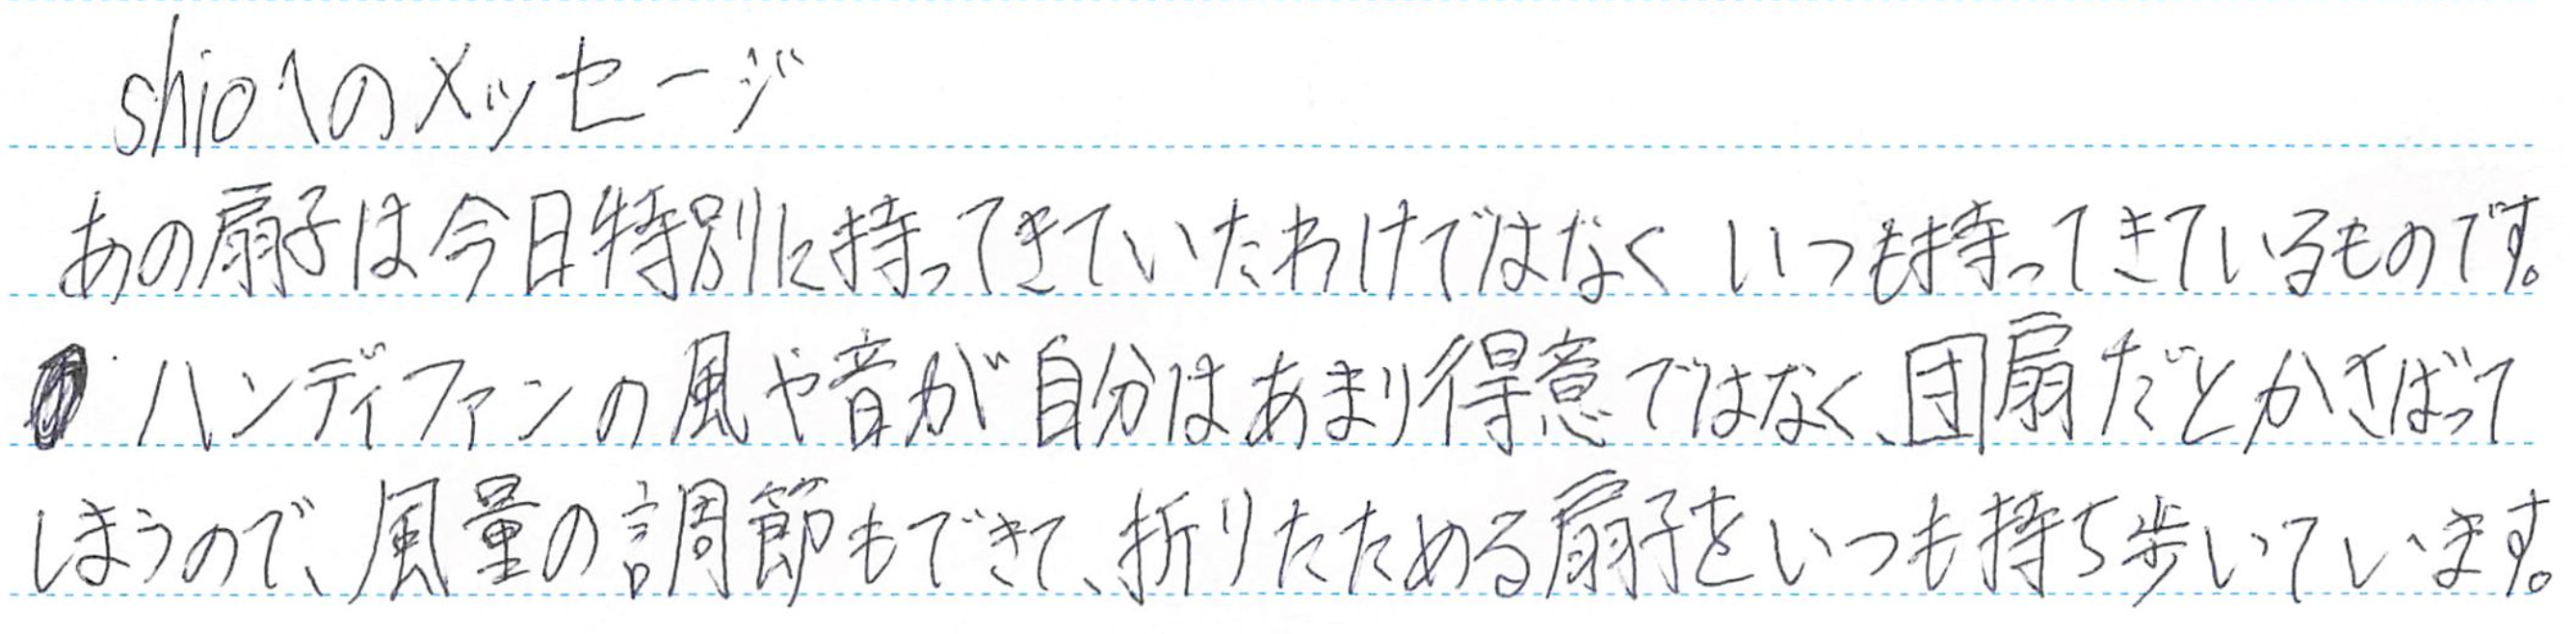 shioへのメッセージ
あの扇子は今日特別に持ってきていたわけではなく いつも持ってきているものです。
ハンディファンの風や音が自分はあまり得意ではなく、団扇だとかさばって
しまうので、風量の調節もできて、折りたためる扇子をいつも持ち歩いています。